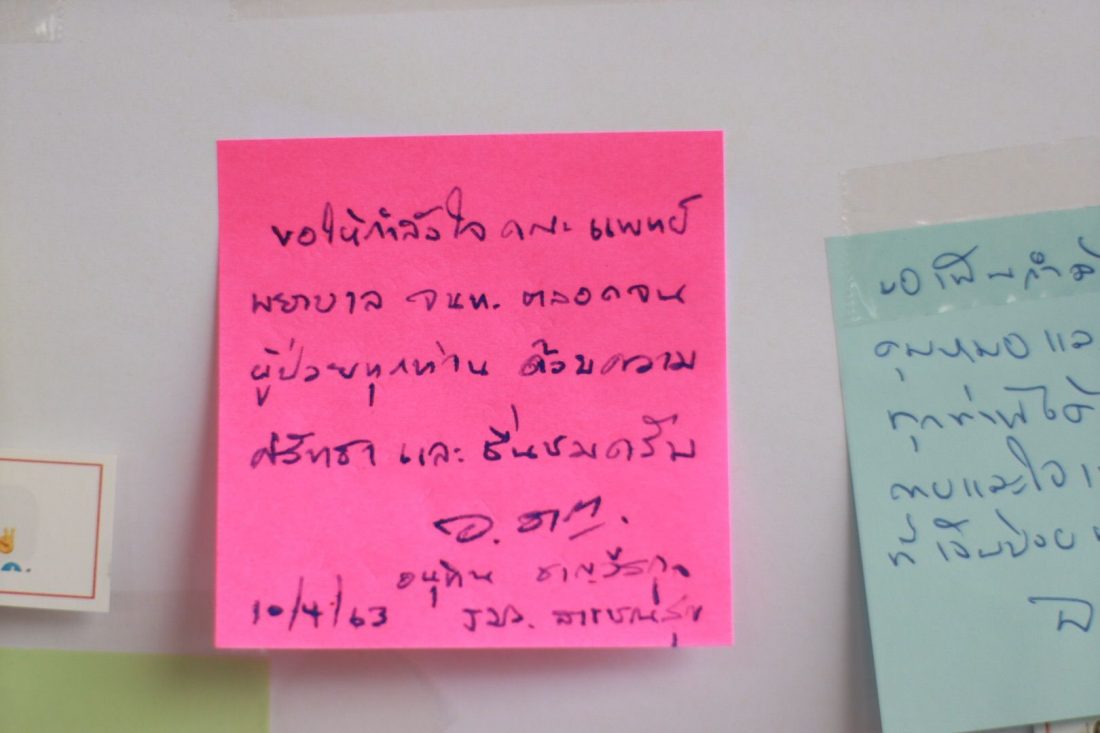 ขอให้กำลังใจ คณะ แพทย์
พยาบาล จนท. ตลอดจน
ผู้ป่วยทุกท่าน ด้วยความ
ศรัทธา และ ชื่นชมครับ
อนุทิน ชาญวีรกูล
10/4/63 รมว. สาธารณสุข
ขอเป็นกำลั
คุณหมอ แล
ทุกท่าน
กายและใจ
ที่เจ็บป่วย